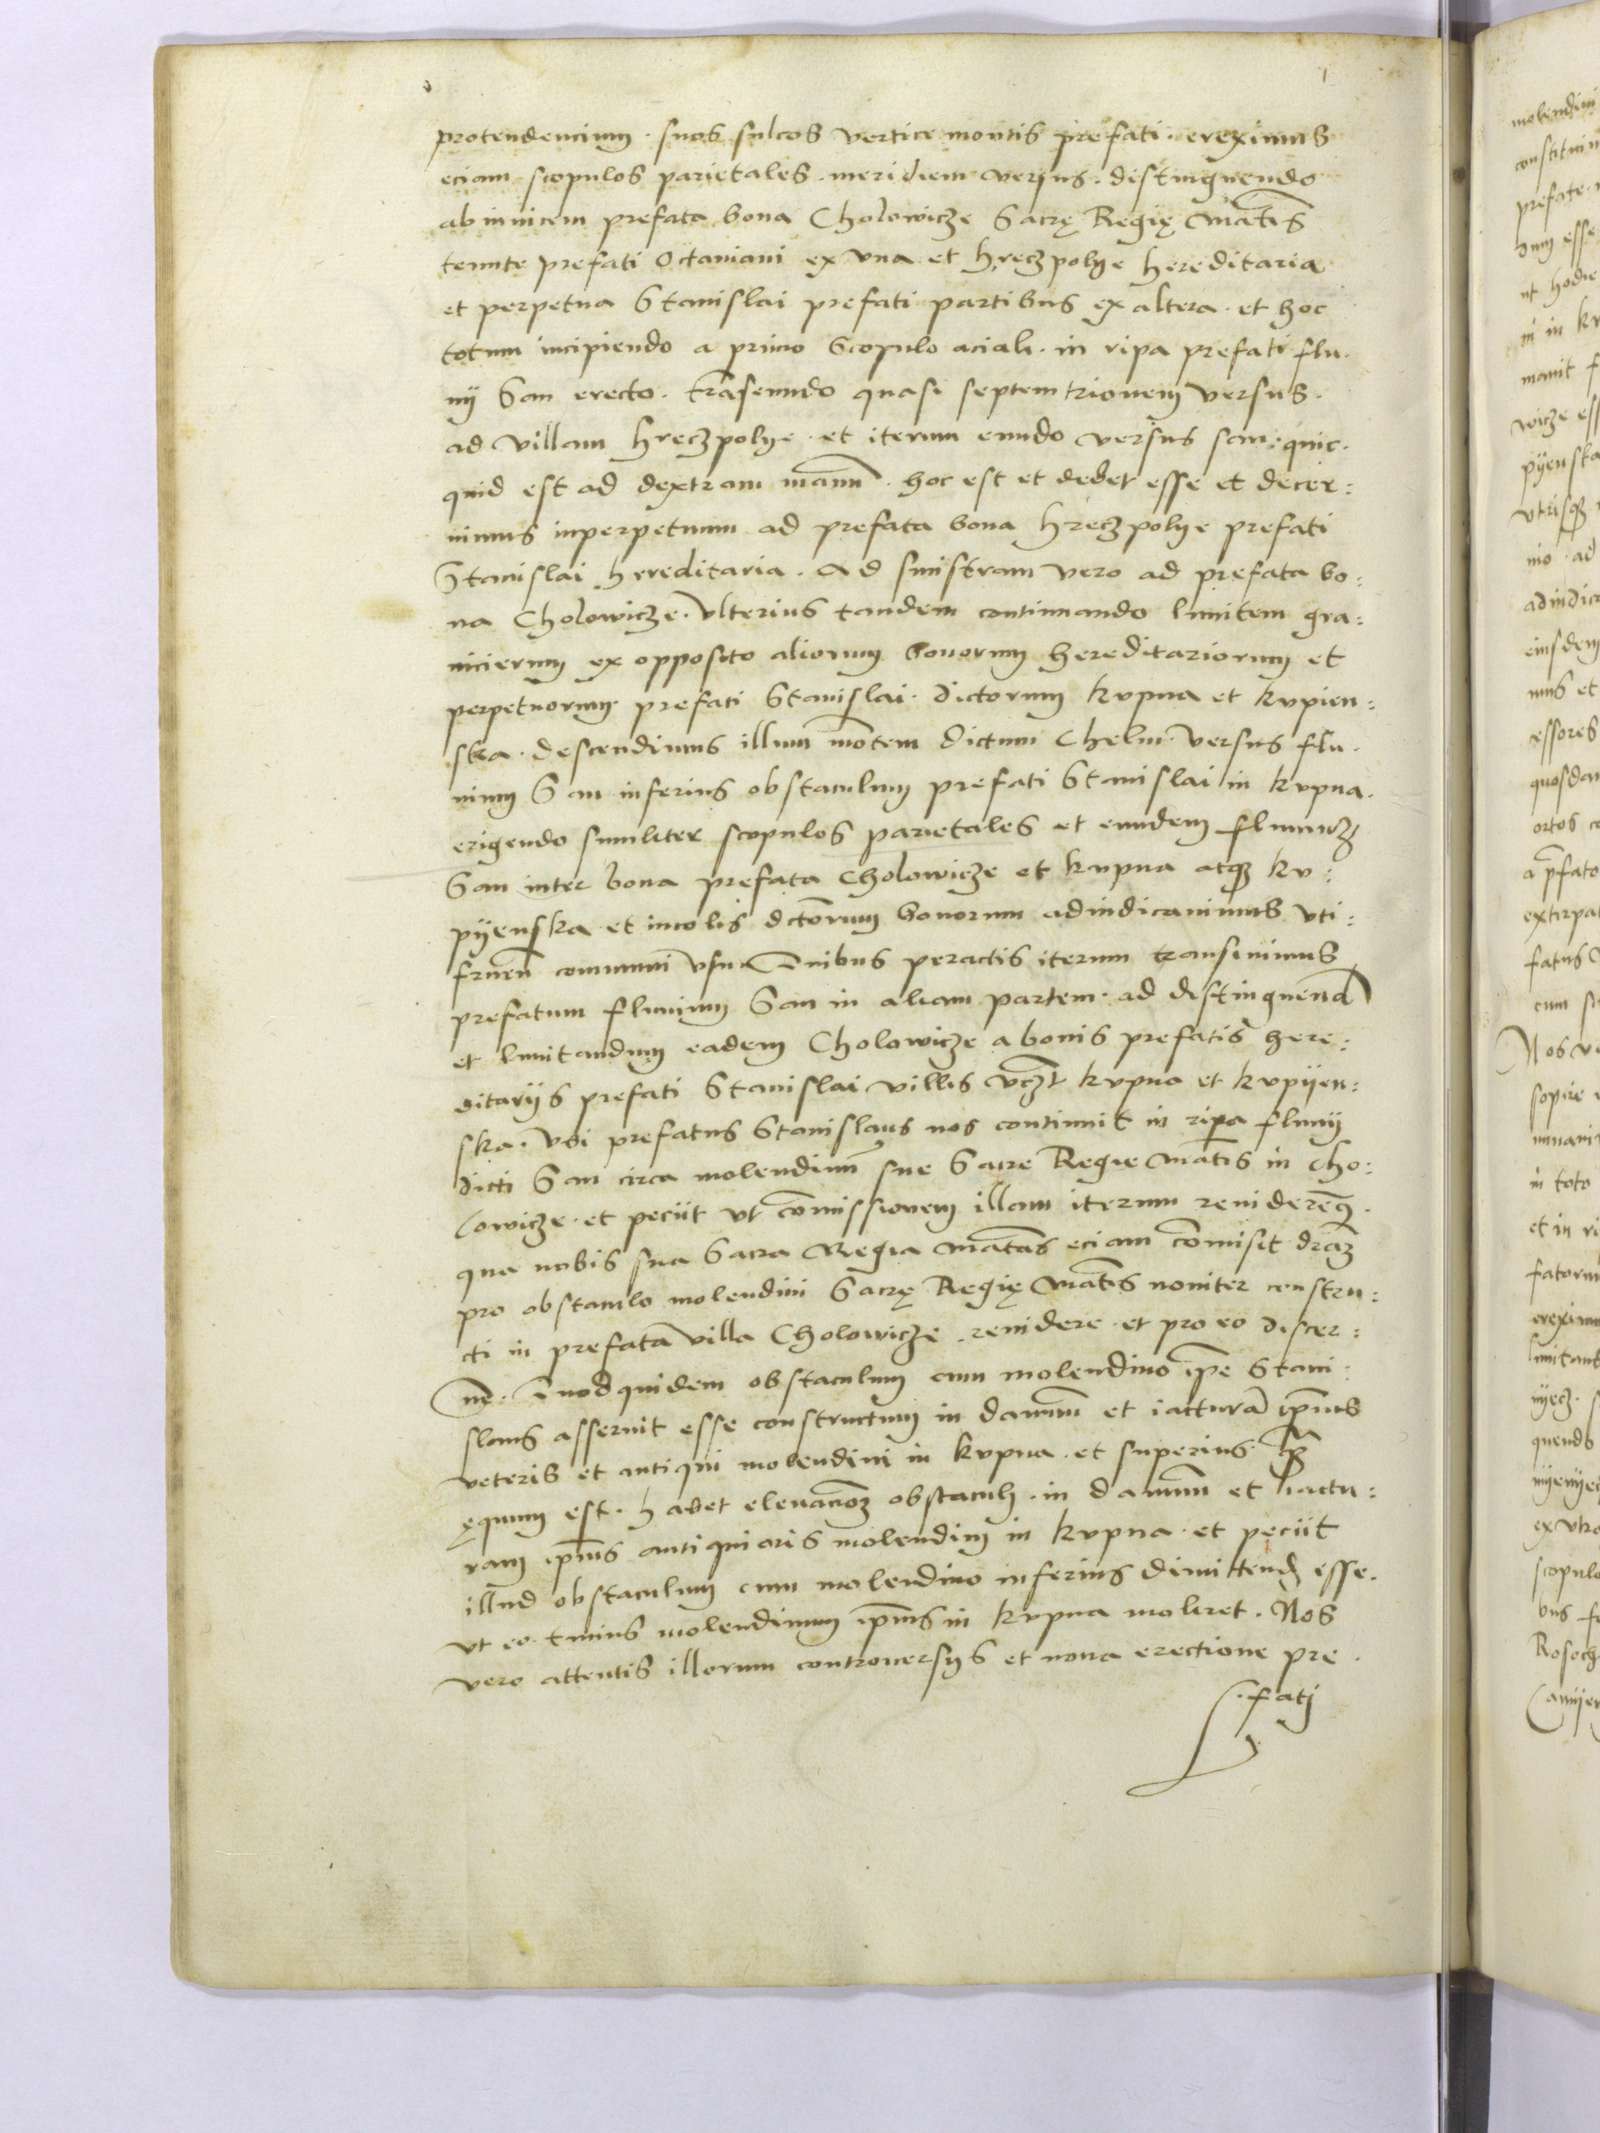 protendencium · suos sulcos vertice montis prefati · ereximus
eciam scopulos parietales · meridiem versus · distinguendo
ab inuicem prefata bona Cholowicze Sacrę Regię Ma͠tis
tenute prefati Octauiani ex vna et hreczpolye hereditaria
et perpetua Stanislai prefati partibus ex altera · et hoc
totum incipiendo a primo Scopulo aciali · in ripa prefati flu·
uij San erecto · tra͠seundo quasi septemtrionem versus ·
ad villam hreczpolye · et iterum eundo versus san · quic·
quid est ad dextram manu͠ · hoc est et debet esse et decer:
nimus inperpetuum ad prefata bona hreczpolye prefati
Stanislai hereditaria · Ad sinistram vero ad prefata bo:
na Cholowicze · vlterius tandem continuando limitem gra:
nicierum ex opposito aliorum bonorum hereditariorum et
perpetuorum prefati Stanislai · dictorum krpna et krpien:
ska · descendimus illum mo͠tem dictum Chelm · versus flu·
uium San inferius obstaculum prefati Stanislai in krpna ·
erigendo similiter scopulos parietales et eundem fluuiu͠
San inter bona prefata Cholowicze et krpna atq3 kr:
pyenska · et incolis dcto͠rum bonorum adiudicauimus vti:
fruen͠ communi vsu · O͠nibus peractis iterum transiuimus
prefatum fluuium San in aliam partem · ad distinguend
et limitandum eadem Cholowicze a bonis prefatis here:
ditarijs prefati Stanislai villis vcz͠t krpna et krpyen:
ska · vbi prefatus Stanislaus nos continuit in ripa fluuij
dicti San circa molendinu͠ sue Sacre Regie Ma͠tis in Cho:
lowicze · et peciit vt co͠missionem illam iterum reuidere͠9 ·
qua nobis sua Sacra Regia Ma͠tas eciam co͠misit
pro obstaculo molendini Sacrę Regię Ma͠tis nouiter constru:
cti in prefata villa Cholowicze · reuidere · et pro eo discer:
ne͠ · Quod quidem obstaculum cum molendino ip͠e Stani·
slaus asseruit esse constructum in damnu͠ et iactura͠ ip͠ius
veteris et antiqui molendini in krpna · et superius
ęquum est · habet eleuacio͠3 obstaculi · in damnu͠ et iactu:
ram ip͠ius antiquioris molendini in krpna · et peciit
illud obstaculum cum molendino inferius dimittend esse ·
vt eo · molendinum ip͠ius in krpna moleret · Nos
vero attentis illorum controuersijs et noua erectione pre ·
· fatj